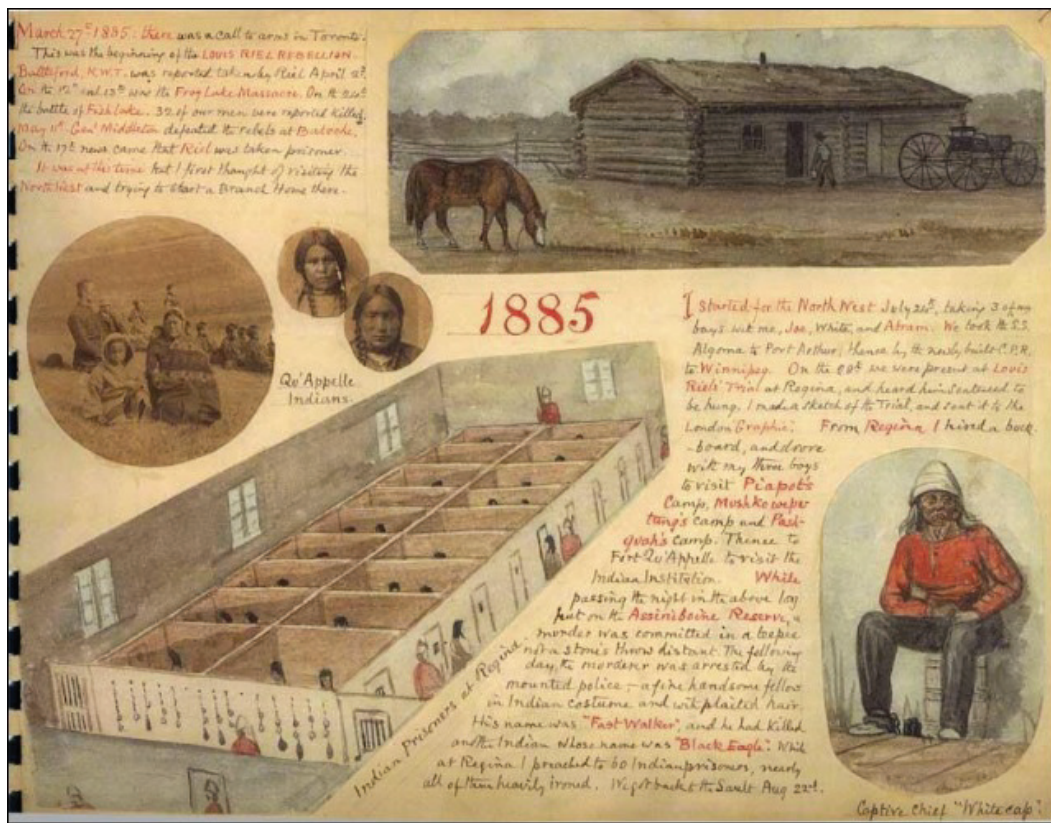 March 27th 1885: there was a call to arms in Toronto.
This was the beginning of the LOUIS RIEL REBELLION.
Battleford, N.W.T. was reported taken by Riel April 2d.
On the 12th and 13th was the Frog Lake Massacre. On the 24th
the battle of Fish Lake. 32 of our men were reported killed.
May 11th Genl Middleton defeated the rebels at Batoche.
On the 17th news came that Riel was taken prisoner.
It was at this time that I first thought of visiting the
North West and trying to start a Branch Home there.
Qu'Appelle
Indians.
1885
I started for the North West July 24th, taking 3 of my
boys with me, Joe, White, and Abram. We took the S.S.
Algoma to Port Arthur; thence by the newly built C.P.R.
to Winnipeg. On the we were present at Louis
Riels' Trial at Regina, and heard him sentenced to
be hung. I made a sketch of the Trial, and sent it to the
London Graphic. From Regina I hired a buck
-board, and drove
with my three boys
to visit Piapot's
Camp, Mushkowepe-
tung's camp and Pas-
quah's camp. Thence to
Fort Qu'Appelle to visit the
Indian Institution. While
passing the night in the above log
hut on the Assiniboine Reserve, a
murder was committed in a teepee
not a stone's throw distant. The following
day, the murderer was arrested by the
mounted police; - a fine handsome fellow
in Indian costume and with plaited hair.
His name was "Fast Walker", and he had killed
another Indian whose name was "Black Eagle". While
at Regina I preached to 60 Indian prisoners, nearly
all of them heavily ironed. We got back to the Sault Aug 22nd.
Indian Prisoners at Regina.
Captive Chief "Whitecap".